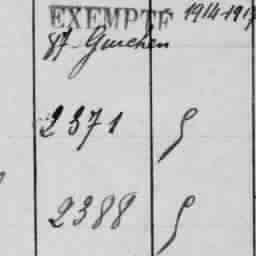 EXEMPTÉ 1914-1917
97 Guichen
2371 S
2388 S